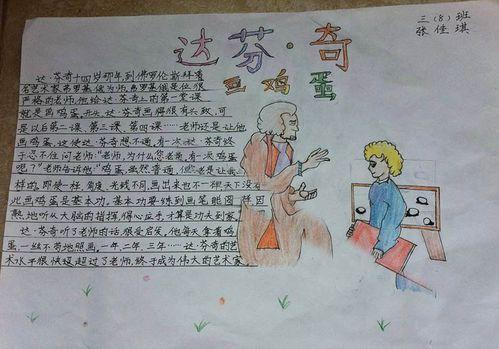 三(8)班
张佳琪
达·芬·奇
画鸡蛋
达·芬奇十四岁那年,到佛罗伦斯拜着
名艺术家弗罗基俄为师,弗罗基俄是位很
严格的老师,他给达·芬奇上的第一堂课
就是画鸡蛋,开头,达·芬奇画得很有兴致,可
是以后第二课、第三课、第四课……老师还是让他
画鸡蛋,这使达·芬奇想不通,有一次达·芬奇终
于忍不住问老师:"老师,为什么您老是
呢?"老师告诉他:"鸡蛋,虽然普通,但
样的,即使一枚,角度,光线不同,画出来也不一
此,画鸡蛋是基本功,基本功要练到画笔能圆
熟地听从大脑的指挥,得心应手,才算是功夫到家
达·芬奇听了老师的话,很受启发,他每天拿着鸡
蛋,一丝不苟地照画,一年、二年、三年……达·芬奇的艺
术水平很快超过了老师,终于成为伟大的艺术家。